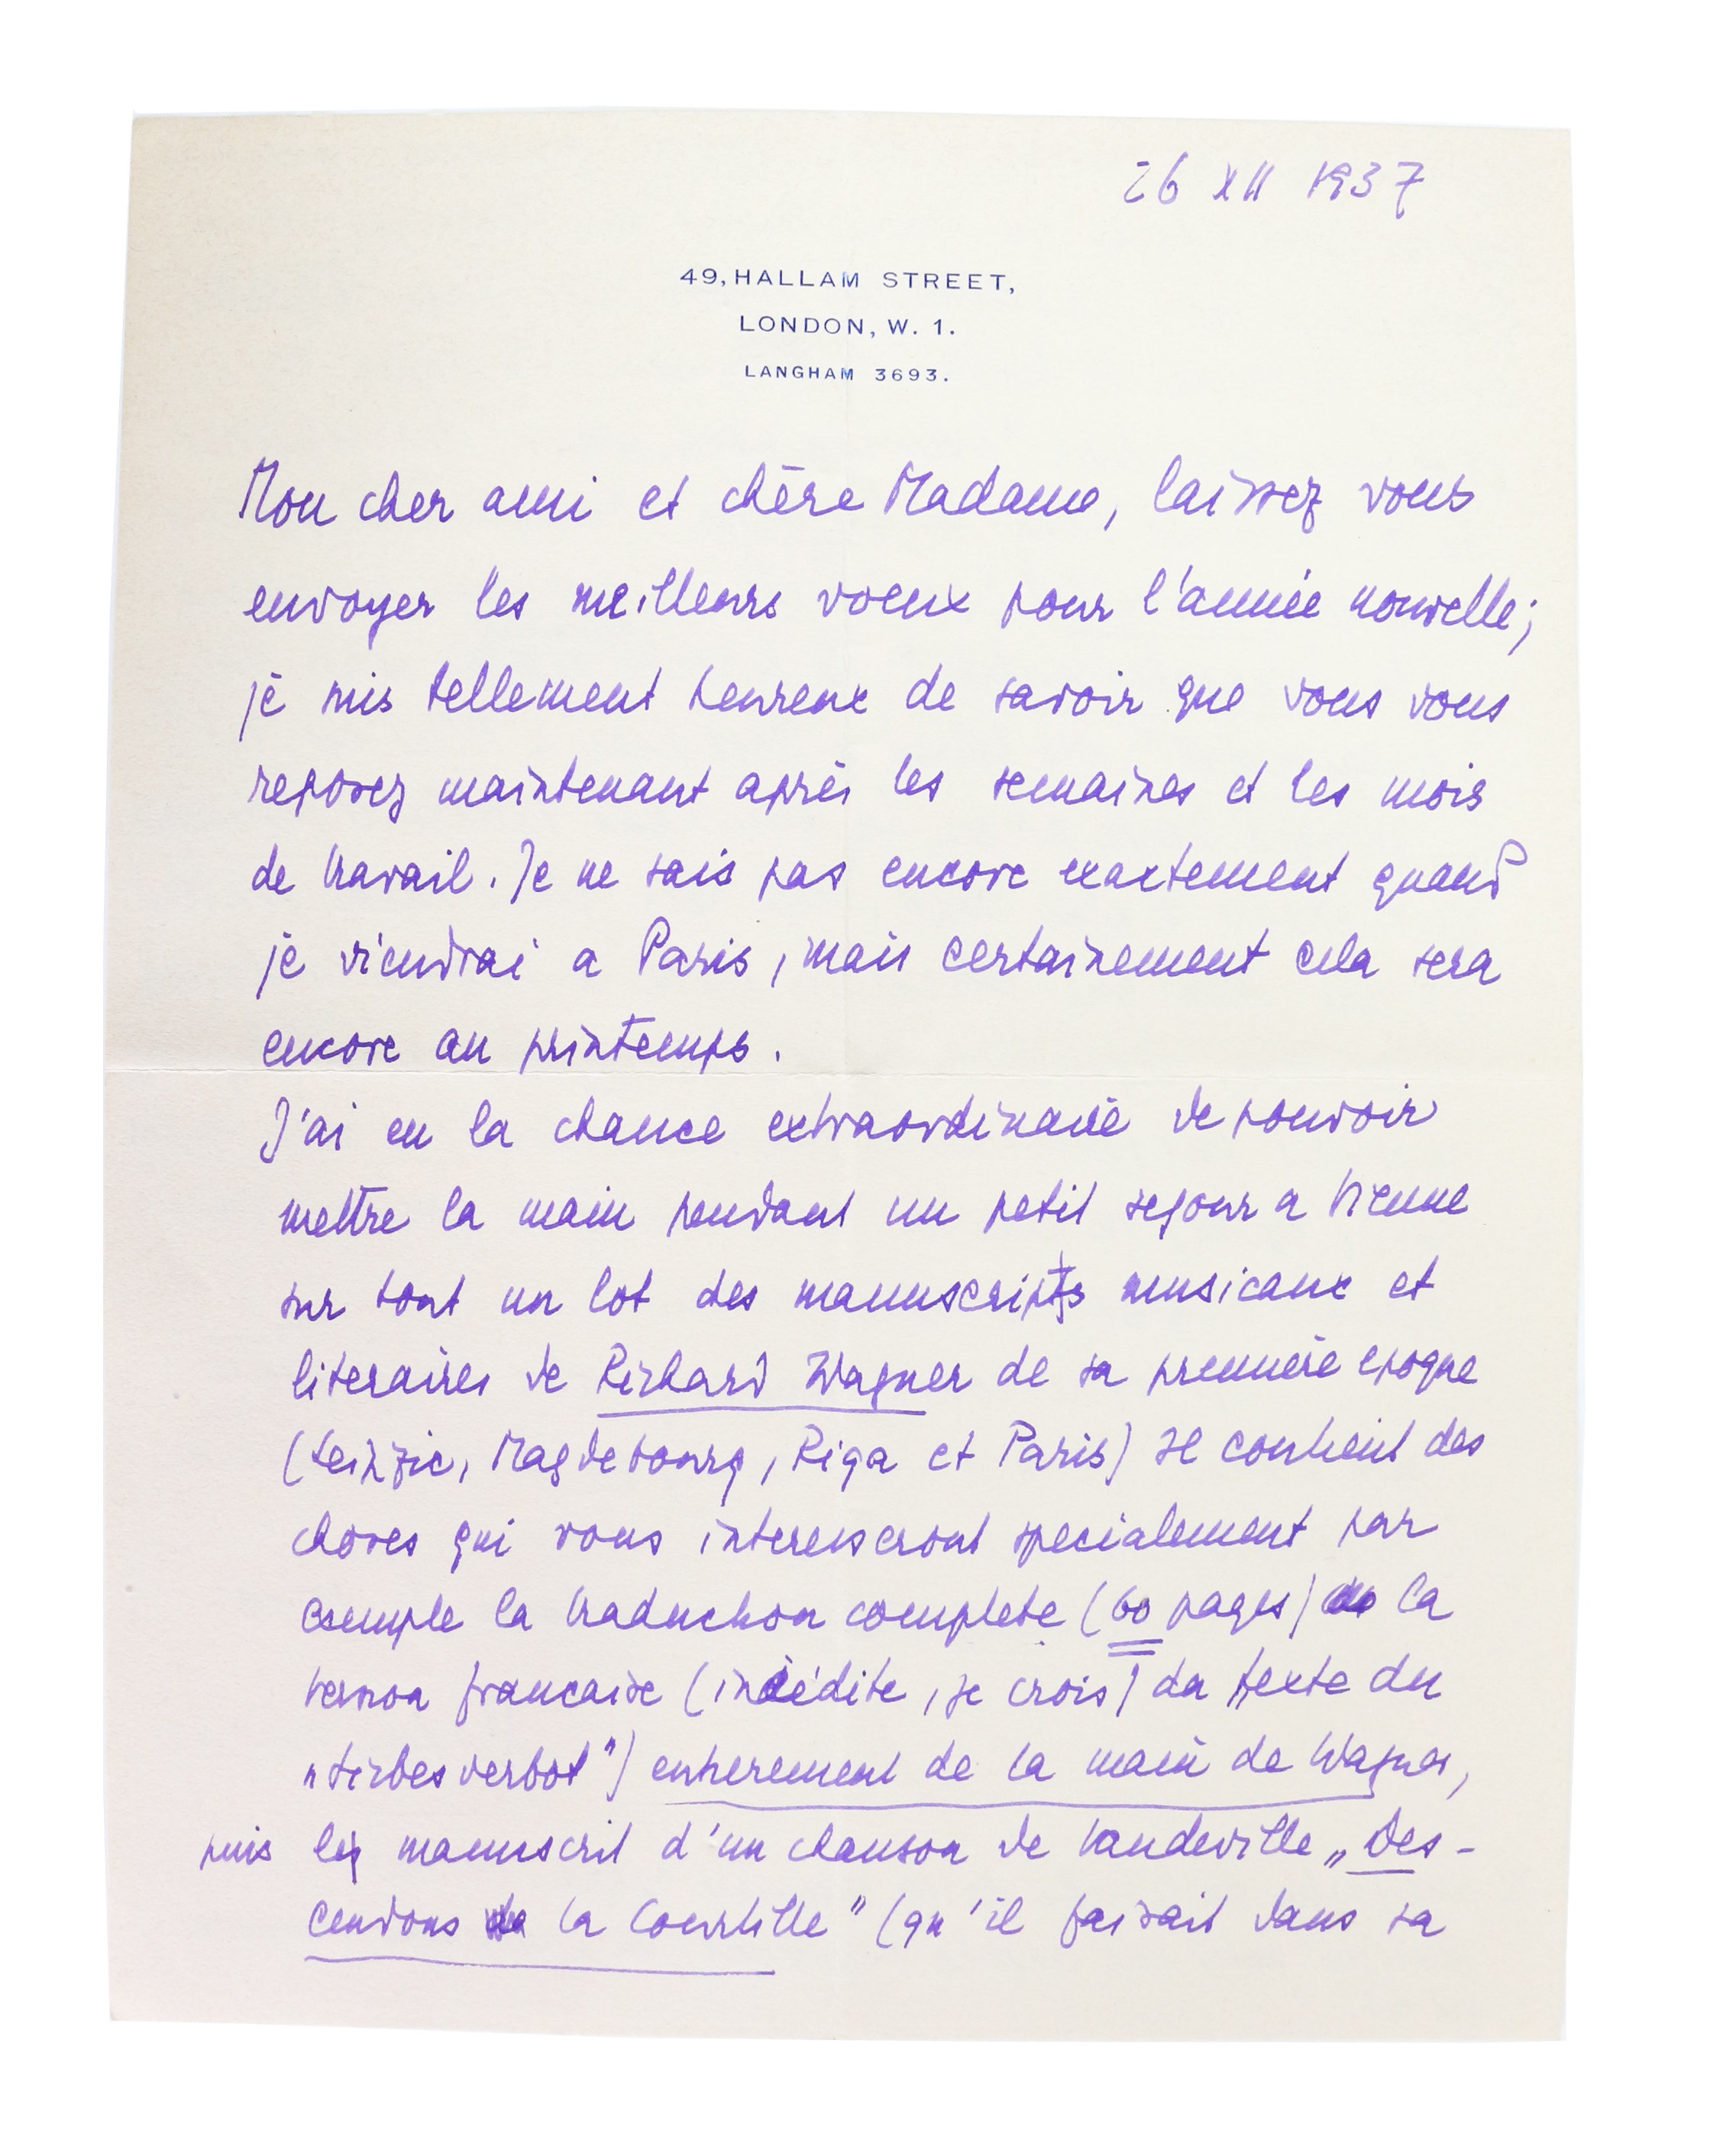 26 XII 1937
49, HALLAM STREET,
LONDON, W. 1.
LANGHAM 3693.
Mon cher ami et chère Madame, laissez vous
envoyer les meilleurs voeux pour l'année nouvelle;
je suis tellement heureux de savoir que vous vous
reposez maintenant après les semaines et les mois
de travail. Je ne sais pas encore exactement quand
je viendrai a Paris, mais certainement cela sera
encore au printemps.
J'ai eu la chance extraordinaire de pouvoir
mettre la main pendant un petit sejour a Vienne
sur tout un lot des manuscripts musicaux et
literaires de Richard Wagner de sa première epoque
(Leipzic, Magdebourg, Riga et Paris) Il contient des
choses qui vous interesseront specialement par
exemple la traduction complete (60 pages) de la
version francaise (inédite, je crois) du texte du
„Liebesverbot") entierement de la main de Wagner,
puis le manuscrit d'un chanson de Vaudeville „Des-
cendons la Courtille" (qu'il faisait dans sa